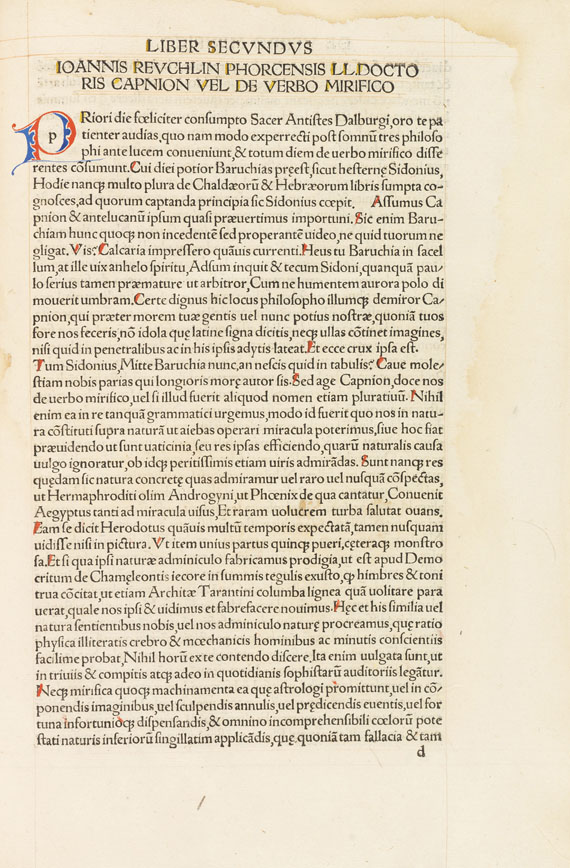 LIBER SECVNDVS
IOANNIS REVCHLIN PHORCENSIS LL.DOCTO
RIS CAPNION VEL DE VERBO MIRIFICO
p
PRiori die fœliciter consumpto Sacer Antistes Dalburgi,oro te pa
tienter audias,quo nam modo experrecti post somnũ tres philoso
phi ante lucem conueniunt,& totum diem de uerbo mirifico disse
rentes cõsumunt.Cui diei potior Baruchias pręest,sicut hesternę Sidonius,
Hodie nancȝ multo plura de Chaldæorũ & Hebræorum libris sumpta co-
gnosces,ad quorum captanda principia sic Sidonius cœpit. Assumus Ca
pnion & antelucanũ ipsum quasi præuertimus importuni. Sic enim Baru-
chiam hunc quoqȝ non incedentẽ sed properantẽ uideo,ne quid tuorum ne
gligat.Vis? Calcaria impressero quãuis currenti.Heus tu Baruchia in sacel
lum,at ille uix anhelo spiritu,Adsum inquit & tecum Sidoni,quanquã pau-
lo serius tamen præmature ut arbitror,Cum ne humentem aurora polo di
mouerit umbram.Certe dignus hic locus philosopho illumqȝ demiror Ca-
pnion,qui præter morem tuæ gentis uel nunc potius nostræ,quoniã tuos
fore nos feceris,nõ idola quę latine signa dicitis,neqȝ ullas cõtinet imagines,
nisi quid in penetralibus ac in his ipsis adytis lateat.Et ecce crux ipsa est.
Tum Sidonius,Mitte Baruchia nunc,an nescis quid in tabulis? Caue mole-
stiam nobis parias qui longioris morę autor sis.Sed age Capnion,doce nos
de uerbo mirifico,uel si illud fuerit aliquod nomen etiam pluratiuũ. Nihil
enim ea in re tanquã grammatici urgemus,modo id fuerit quo nos in natu-
ra cõstituti supra naturã ut aiebas operari miracula poterimus,siue hoc fiat
præuidendo ut sunt uaticinia,seu res ipsas efficiendo,quarũ naturalis causa
uulgo ignoratur,ob idqȝ peritissimis etiam uiris admirãdas. Sunt nanqȝ res
quędam sic natura concretę quas admiramur uel raro uel nusquã cõspectas,
ut Hermaphroditi olim Androgyni,ut Phœnix de qua cantatur,Conuenit
Aegyptus tanti ad miracula uisus,Et raram uolucrem turba salutat ouans.
Eam se dicit Herodotus quãuis multũ temporis expectatã,tamen nusquam
uidisse nisi in pictura. Vt item unius partus quinqȝ pueri,cęteraqȝ monstro
sa.Et si qua ipsi naturæ adminiculo fabricamus prodigia,ut est apud Demo
critum de Chamęleontis iecore in summis tegulis exusto,qȝ himbres & toni
trua cõcitat,ut etiam Architæ Tarantini columba lignea quã uolitare para
uerat,quale nos ipsi & uidimus et fabrefacere nouimus.Hęc et his similia uel
natura sentientibus nobis,uel nos adminiculo naturę procreamus,quę ratio
physica illiteratis crebro & mœchanicis hominibus ac minutis conscientiis
facilime probat,Nihil horũ ex te contendo discere.Ita enim uulgata sunt,ut
in triuiis & compitis atqȝ adeo in quotidianis sophistarũ auditoriis legãtur.
Neqȝ mirifica quoqȝ machinamenta ea quę astrologi promittunt,uel in cõ-
ponendis imaginibus,uel sculpendis annulis,uel prędicendis euentis,uel for
tuna infortunioqȝ dispensandis,& omnino incomprehensibili cœlorũ pote
stati naturis inferiorũ singillatim applicãdis,quę quoniã tam fallacia & tam
d